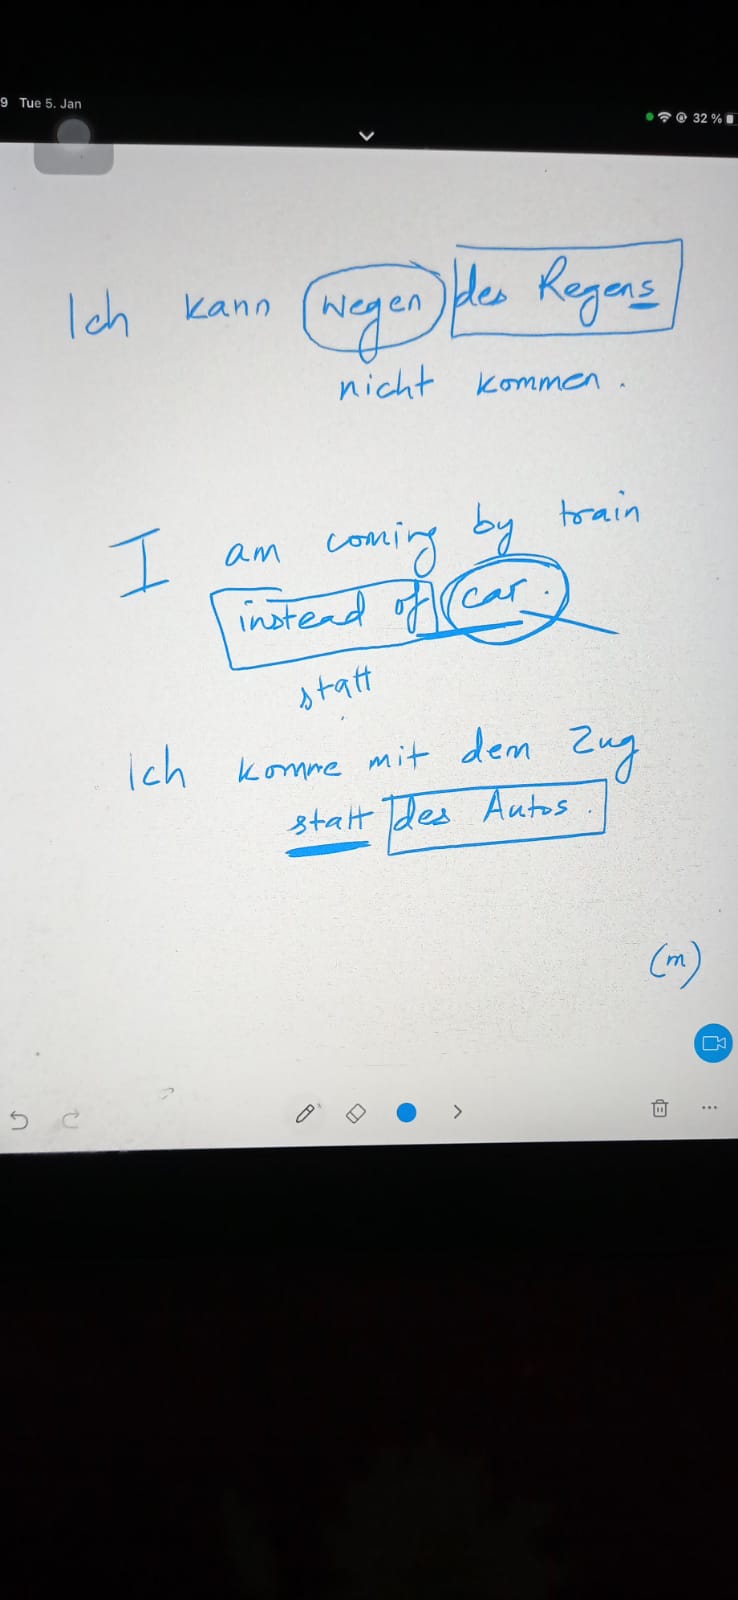 9 Tue 5. Jan
32 %
Ich kann wegen des Regens
nicht kommen.
I am coming by train
instead of car.
statt
Ich komme mit dem Zug
statt des Autos.
(m)